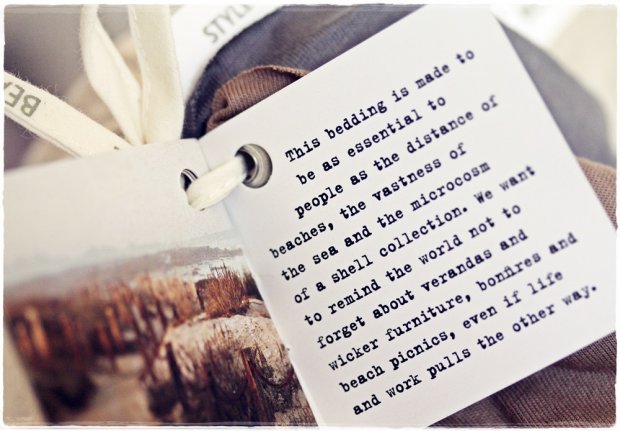 STYL
BEA
This bedding is made to
be as essential to
people as the distance of
beaches, the vastness of
the sea and the microcosm
of a shell collection. We want
to remind the world not to
forget about verandas and
wicker furniture, bonfires and
beach picnics, even if life
and work pulls the other way.